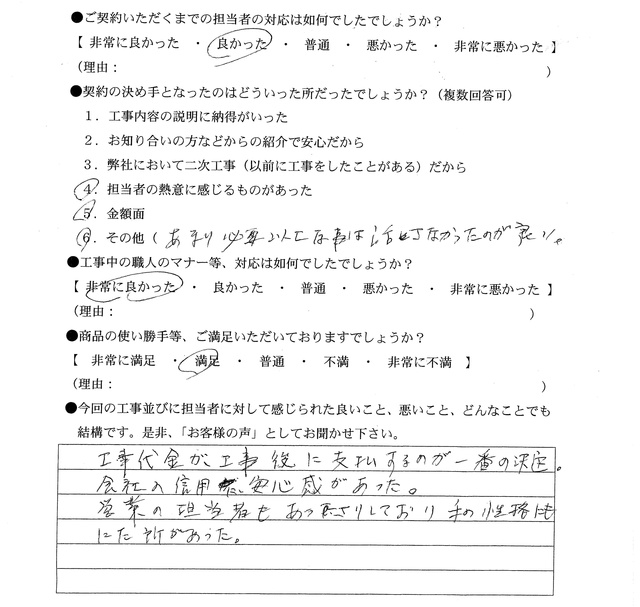 ●ご契約いただくまでの担当者の対応は如何でしたでしょうか？
【 非常に良かった ・ 良かった ・ 普通 ・ 悪かった ・ 非常に悪かった 】
（理由： ）
●契約の決め手となったのはどういった所だったでしょうか？（複数回答可）
１．工事内容の説明に納得がいった
２．お知り合いの方などからの紹介で安心だから
３．弊社において二次工事（以前に工事をしたことがある）だから
４．担当者の熱意に感じるものがあった
５．金額面
６．その他（ あまり必要以上な事は話さなかったのが良い。
●工事中の職人のマナー等、対応は如何でしたでしょうか？
【 非常に良かった ・ 良かった ・ 普通 ・ 悪かった ・ 非常に悪かった 】
（理由： ）
●商品の使い勝手等、ご満足いただいておりますでしょうか？
【 非常に満足 ・ 満足 ・ 普通 ・ 不満 ・ 非常に不満 】
（理由： ）
●今回の工事並びに担当者に対して感じられた良いこと、悪いこと、どんなことでも
結構です。是非、「お客様の声」としてお聞かせ下さい。
工事代金が工事後に支払するのが一番の決定。
会社の信用 安心感があった。
営業の担当者もあっさりしており 性格にも
にた所があった。